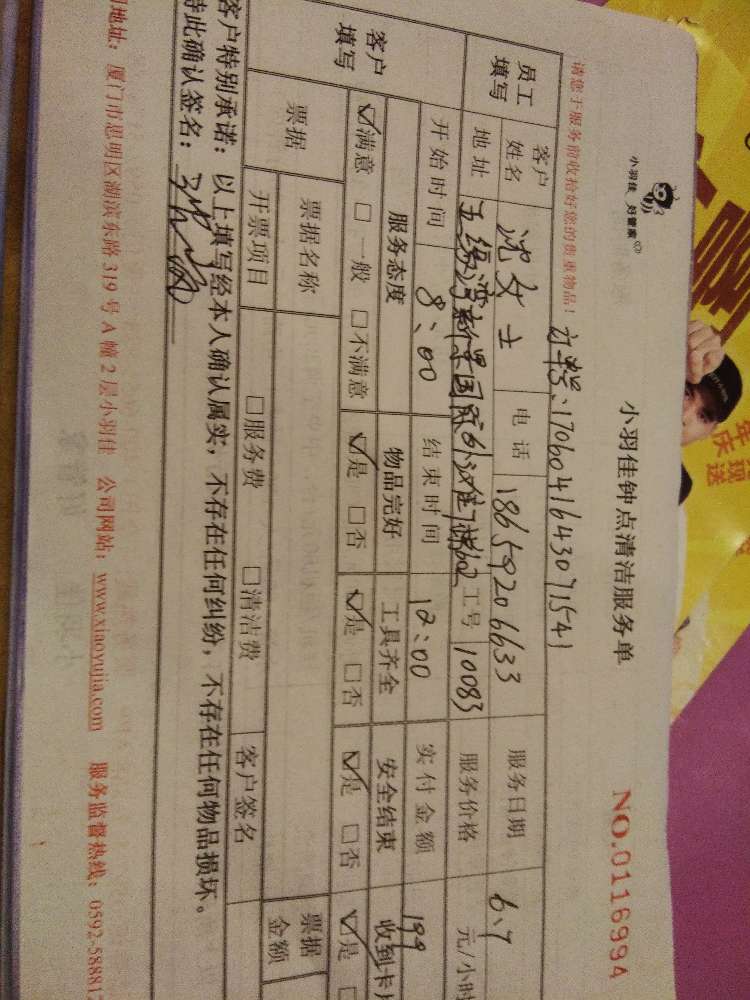 小羽佳 好管家
小羽佳钟点清洁服务单
NO.0116994
请您于服务前收拾好您的贵重物品！
订单号：17060416430971541
员工填写
客户姓名 沈女士 电话 18659206633 服务日期 6.7
地址 五缘湾 工号 10083 服务价格 元/小时
开始时间 8:00 结束时间 12:00 实付金额 199
客户填写
服务态度 物品完好 工具齐全 安全结束 收到卡片
☑满意 □一般 □不满意 ☑是 □否 ☑是 □否 ☑是 □否 ☑是
票据 票据名称 票据金额
开票项目 □服务费 □清洁费 客户签名
客户特别承诺：以上填写经本人确认属实，不存在任何纠纷，不存在任何物品损坏。
特此确认签名：
地址：厦门市思明区湖滨东路319号A幢2层小羽佳 公司网站：www.xiaoyujia.com 服务监督热线：0592-588812